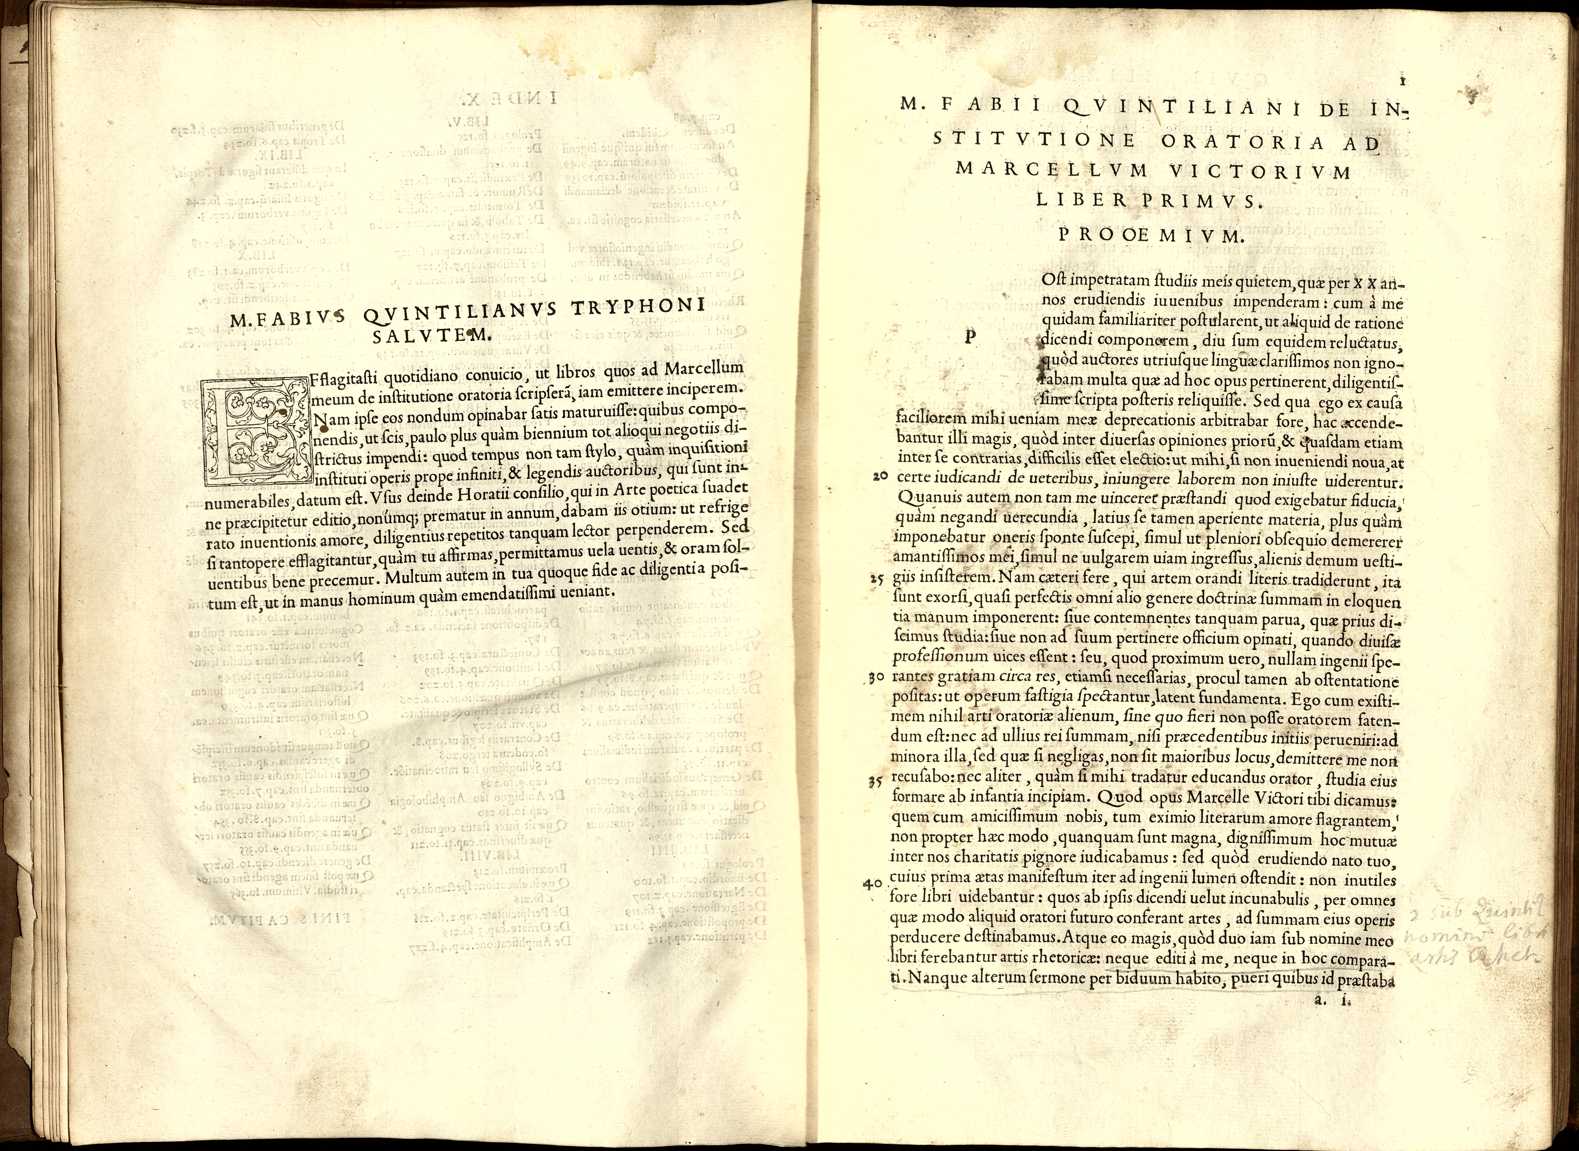 M. FABIVS QVINTILIANVS TRYPHONI
SALVTEM.
EFflagitasti quotidiano conuicio, ut libros quos ad Marcellum
meum de institutione oratoria scripserã, iam emittere inciperem.
Nam ipse eos nondum opinabar satis maturuisse: quibus compo-
nendis, ut scis, paulo plus quàm biennium tot alioqui negotiis di-
strictus impendi: quod tempus non tam stylo, quàm inquisitioni
instituti operis prope infiniti, & legendis auctoribus, qui sunt in-
numerabiles, datum est. Vsus deinde Horatii consilio, qui in Arte poetica suadet
ne præcipitetur editio, nonúmq; prematur in annum, dabam iis otium: ut refrige
rato inuentionis amore, diligentius repetitos tanquam lector perpenderem. Sed
si tantopere efflagitantur, quàm tu affirmas, permittamus uela uentis, & oram sol-
uentibus bene precemur. Multum autem in tua quoque fide ac diligentia posi-
tum est, ut in manus hominum quàm emendatissimi ueniant.
1
M. FABII QVINTILIANI DE IN-
STITVTIONE ORATORIA AD
MARCELLVM VICTORIVM
LIBER PRIMVS.
PROOEMIVM.
POst impetratam studiis meis quietem, quæ per XX an-
nos erudiendis iuuenibus impenderam: cum à me
quidam familiariter postularent, ut aliquid de ratione
dicendi componerem, diu sum equidem reluctatus,
quòd auctores utriusque linguæ clarissimos non igno-
rabam multa quæ ad hoc opus pertinerent, diligentis-
sime scripta posteris reliquisse. Sed qua ego ex causa
faciliorem mihi ueniam meæ deprecationis arbitrabar fore, hac accende-
bantur illi magis, quòd inter diuersas opiniones priorũ, & quasdam etiam
inter se contrarias, difficilis esset electio: ut mihi, si non inueniendi noua, at
20 certe iudicandi de ueteribus, iniungere laborem non iniuste uiderentur.
Quanuis autem non tam me uinceret præstandi quod exigebatur fiducia,
quàm negandi uerecundia, latius se tamen aperiente materia, plus quàm
imponebatur oneris sponte suscepi, simul ut pleniori obsequio demererer
amantissimos mei, simul ne uulgarem uiam ingressus, alienis demum uesti-
25 giis insisterem. Nam cæteri fere, qui artem orandi literis tradiderunt, ita
sunt exorsi, quasi perfectis omni alio genere doctrinæ summam in eloquen
tia manum imponerent: siue contemnentes tanquam parua, quæ prius di-
scimus studia: siue non ad suum pertinere officium opinati, quando diuisæ
professionum uices essent: seu, quod proximum uero, nullam ingenii spe-
30 rantes gratiam circa res, etiamsi necessarias, procul tamen ab ostentatione
positas: ut operum fastigia spectantur, latent fundamenta. Ego cum existi-
mem nihil arti oratoriæ alienum, sine quo fieri non posse oratorem faten-
dum est: nec ad ullius rei summam, nisi præcedentibus initiis perueniri: ad
minora illa, sed quæ si negligas, non sit maioribus locus, demittere me non
35 recusabo: nec aliter, quàm si mihi tradatur educandus orator, studia eius
formare ab infantia incipiam. Quod opus Marcelle Victori tibi dicamus:
quem cum amicissimum nobis, tum eximio literarum amore flagrantem,
non propter hæc modo, quanquam sunt magna, dignissimum hoc mutuæ
inter nos charitatis pignore iudicabamus: sed quòd erudiendo nato tuo,
40 cuius prima ætas manifestum iter ad ingenii lumen ostendit: non inutiles
fore libri uidebantur: quos ab ipsis dicendi uelut incunabulis, per omnes
quæ modo aliquid oratori futuro conferant artes, ad summam eius operis
perducere destinabamus. Atque eo magis, quòd duo iam sub nomine meo
libri ferebantur artis rhetoricæ: neque editi à me, neque in hoc compara-
ti. Nanque alterum sermone per biduum habito, pueri quibus id præstaba
a. i.
2 sub Quintil
nomine lib
artis Rhet